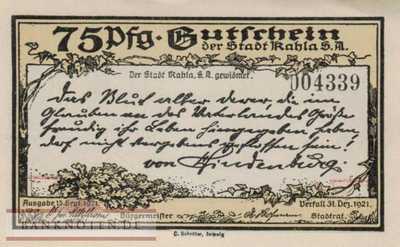 75 Pfg. Gutschein
der Stadt Kahla S.A.
Der Stadt Kahla, S.A. gewidmet.
004339
Das Blut aller derer, die im
Glauben an des Vaterlandes Größe
freudig ihr Leben hingegeben haben,
darf nicht vergebens geflossen sein!
von Hindenburg.
Ausgabe 15. Sept. 1921.
Verfall 31. Dez. 1921.
Bürgermeister
Stadtrat.
BANKNOTEN.DE
C. Schröter, Leipzig